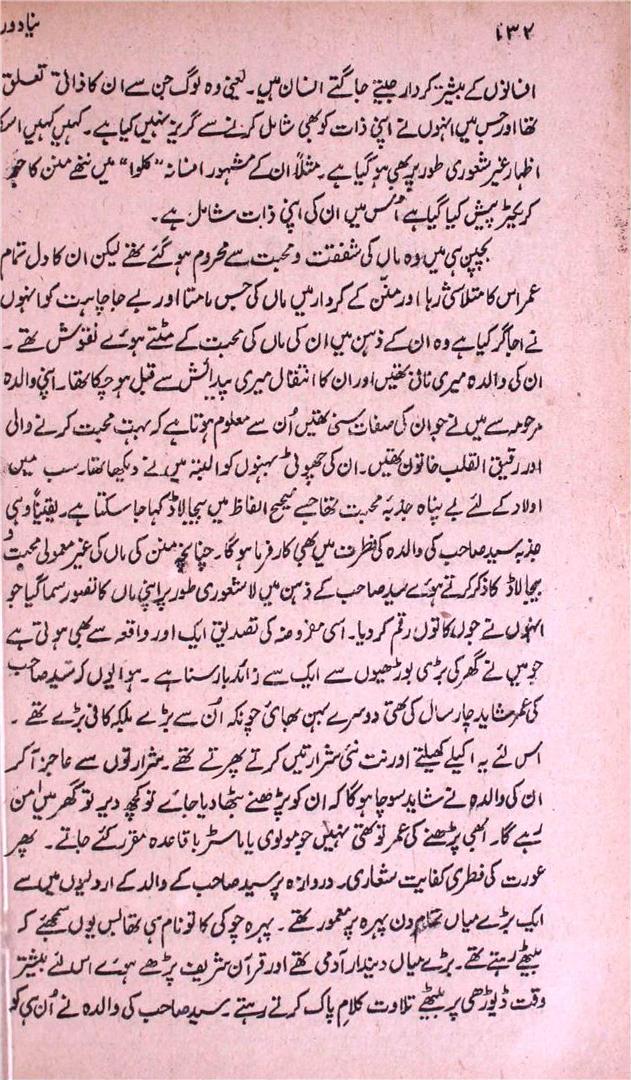 ۱۳۲
نیا دور
افسانوں کے بیشتر کردار جیتے جاگتے انسان ہیں۔ یعنی وہ لوگ جن سے ان کا ذاتی تعلق
تھا اور جس میں انہوں نے اپنی ذات کو بھی شامل کرنے سے گریز نہیں کیا ہے۔ کہیں کہیں اسکا
اظہار غیر شعوری طور پر بھی ہو گیا ہے۔ مثلاً ان کے مشہور افسانہ "کلوا" میں ننھے منن کا جو
کریکٹر پیش کیا گیا ہے اُس میں ان کی اپنی ذات شامل ہے۔
بچپن ہی میں وہ ماں کی شفقت و محبت سے محروم ہو گئے تھے لیکن ان کا دل تمام
عمر اس کا متلاشی رہا اور منّن کے کردار میں ماں کی جس مامتا اور بے جا چاہت کو انہوں
نے اجاگر کیا ہے وہ ان کے ذہن میں ان کی ماں کی محبت کے مٹتے ہوئے نقوش تھے۔
ان کی والدہ میری نانی تھیں اور ان کا انتقال میری پیدائش سے قبل ہو چکا تھا۔ اپنی والدہ
مرحومہ سے میں نے جو ان کی صفات سنی تھیں اُن سے معلوم ہوتا ہے کہ بہت محبت کرنے والی
اور رقیق القلب خاتون تھیں۔ ان کی چھوٹی بہنوں کو البتہ میں نے دیکھا تھا۔ سب میں
اولاد کے لئے بے پناہ جذبۂ محبت تھا جسے صحیح الفاظ میں بیجا لاڈ کہا جا سکتا ہے۔ یقیناً وہی
جذبہ سید صاحب کی والدہ کی فطرت میں بھی کار فرما ہو گا۔ چنانچہ منن کی ماں کی غیر معمولی محبت و
بیجا لاڈ کا ذکر کرتے ہوئے سید صاحب کے ذہن میں لاشعوری طور پر اپنی ماں کا تصور سما گیا جو
انہوں نے جوں کا توں رقم کر دیا۔ اسی مفروضہ کی تصدیق ایک اور واقعہ سے بھی ہوتی ہے
جو میں نے گھر کی بڑی بوڑھیوں سے ایک سے زائد بار سنا ہے۔ ہوا یوں کہ سید صاحب
کی عمر شاید چار سال کی تھی دوسرے بہن بھائی چونکہ اُن سے بڑے بلکہ کافی بڑے تھے۔
اس لئے یہ اکیلے کھیلتے اور نت نئی شرارتیں کرتے پھرتے تھے۔ شرارتوں سے عاجز آ کر
ان کی والدہ نے شاید سوچا ہو گا کہ ان کو پڑھنے بٹھا دیا جائے تو کچھ دیر تو گھر میں امن
رہے گا۔ ابھی پڑھنے کی عمر تو تھی نہیں جو مولوی یا ماسٹر باقاعدہ مقرر کئے جاتے۔ پھر
عورت کی فطری کفایت شعاری۔ دروازہ پر سید صاحب کے والد کے اردلیوں میں سے
ایک بڑے میاں تمام دن پہرہ پر معمور تھے۔ پہرہ چوکی کا تو نام ہی تھا بس یوں سمجھئے کہ
بیٹھے رہتے تھے۔ بڑے میاں دیندار آدمی تھے اور قرآن شریف پڑھے ہوئے اس لئے بیشتر
وقت ڈیوڑھی پر بیٹھے تلاوت کلام پاک کرتے رہتے۔ سید صاحب کی والدہ نے اُن ہی کو